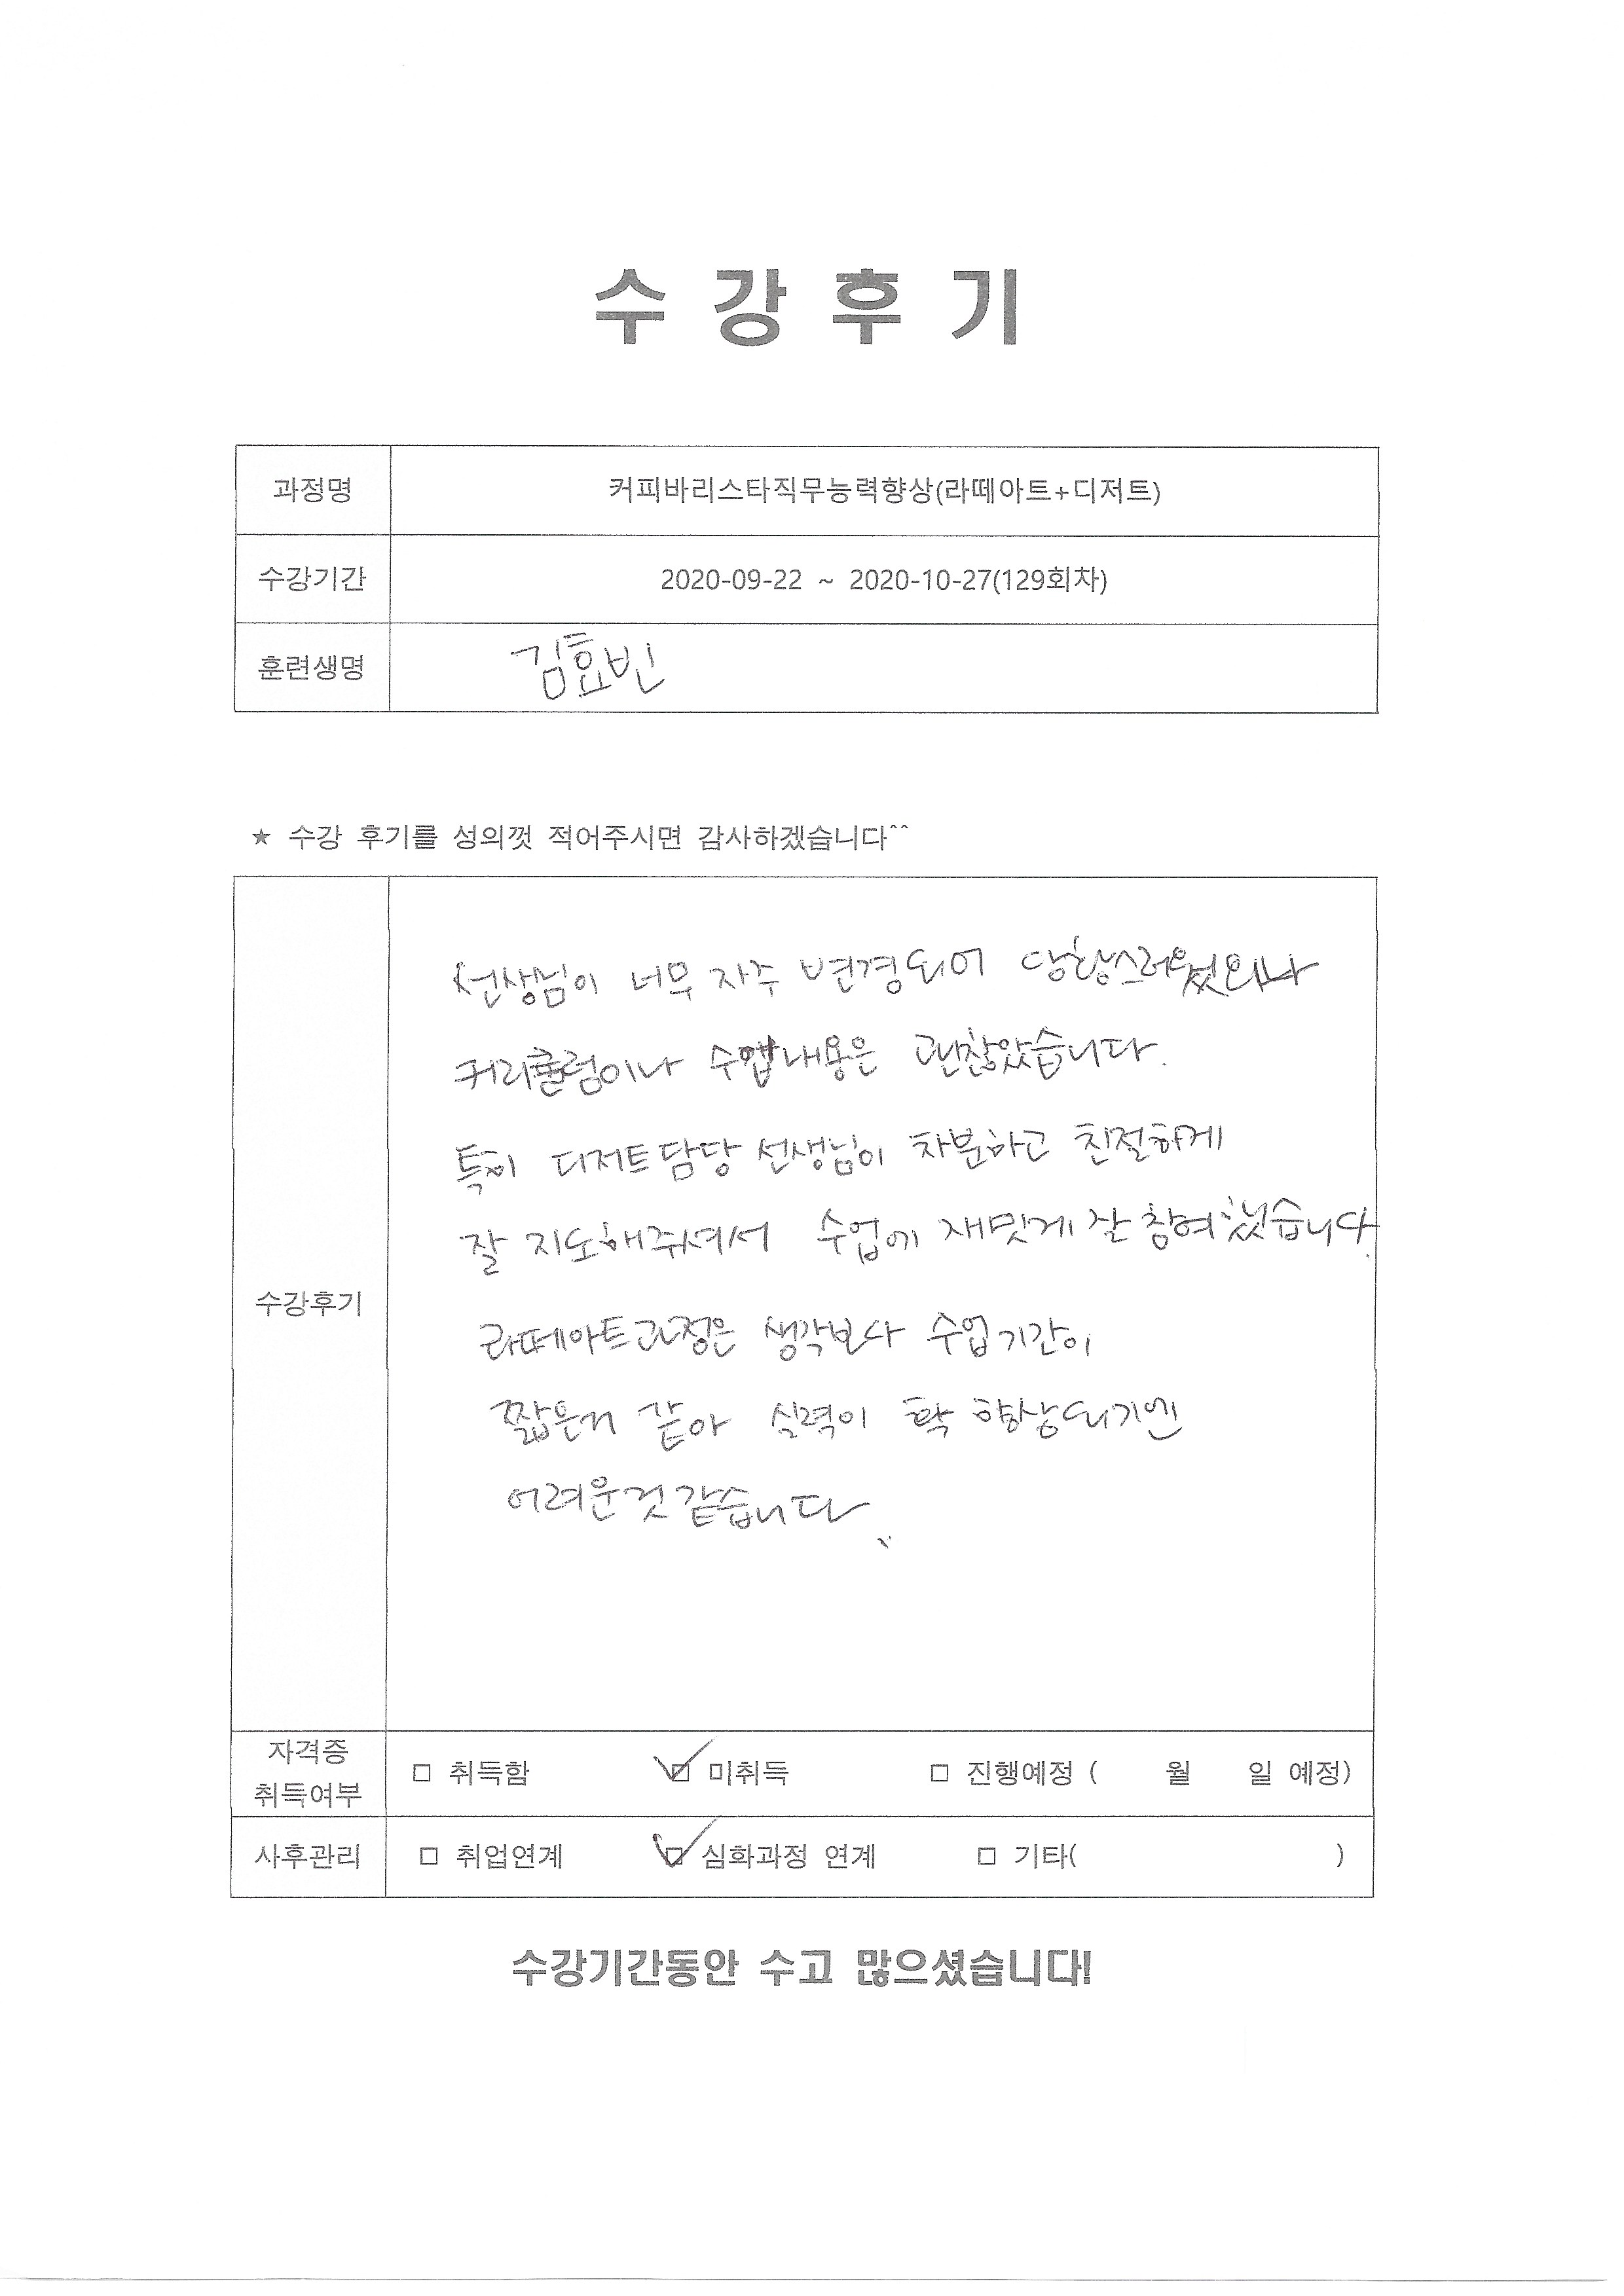 수 강 후 기
과정명 커피바리스타직무능력향상(라떼아트+디저트)
수강기간 2020-09-22 ~ 2020-10-27(129회차)
훈련생명 김효빈
★ 수강 후기를 성의껏 적어주시면 감사하겠습니다^^
선생님이 너무 자주 변경되어 당황스러웠으나
커리큘럼이나 수업내용은 괜찮았습니다.
특히 디저트담당 선생님이 차분하고 친절하게
잘 지도해주셔서 수업에 재밋게 잘 참여했습니다.
수강후기
라떼아트과정은 생각보다 수업기간이
짧은거 같아 실력이 확 향상되기엔
어려운것 같습니다.
자격증
취득여부
□ 취득함 ☑ 미취득 □ 진행예정 ( 월 일 예정)
사후관리 □ 취업연계 ☑ 심화과정 연계 □ 기타( )
수강기간동안 수고 많으셨습니다!